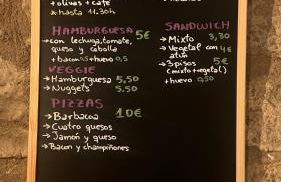 + olivas + café
*hasta 11.30h
HAMBURGUESA 5€
→con lechuga, tomate,
queso y cebolla
+ bacon 0,5 + huevo 0,5
VEGGIE
→Hamburguesa 5,50
→Nuggets 5,50
PIZZAS 10€
→Barbacoa
→Cuatro quesos
→Jamón y queso
→Bacon y champiñones
SANDWICH
→Mixto 3,30
→Vegetal con 4€
atún
→3 pisos 5€
(mixto+vegetal)
+ huevo 0,50